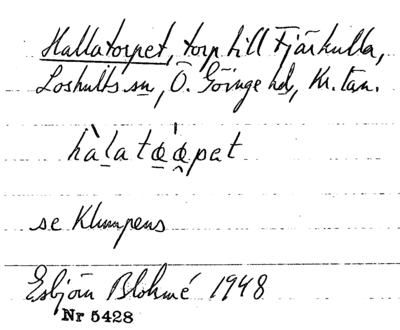 Hallatorpet, torp till Fjärkulla,
Loshults sn, Ö. Göinge hd, Kr. län.
se Klumpens
Esbjörn Blohmé 1948
Nr 5428